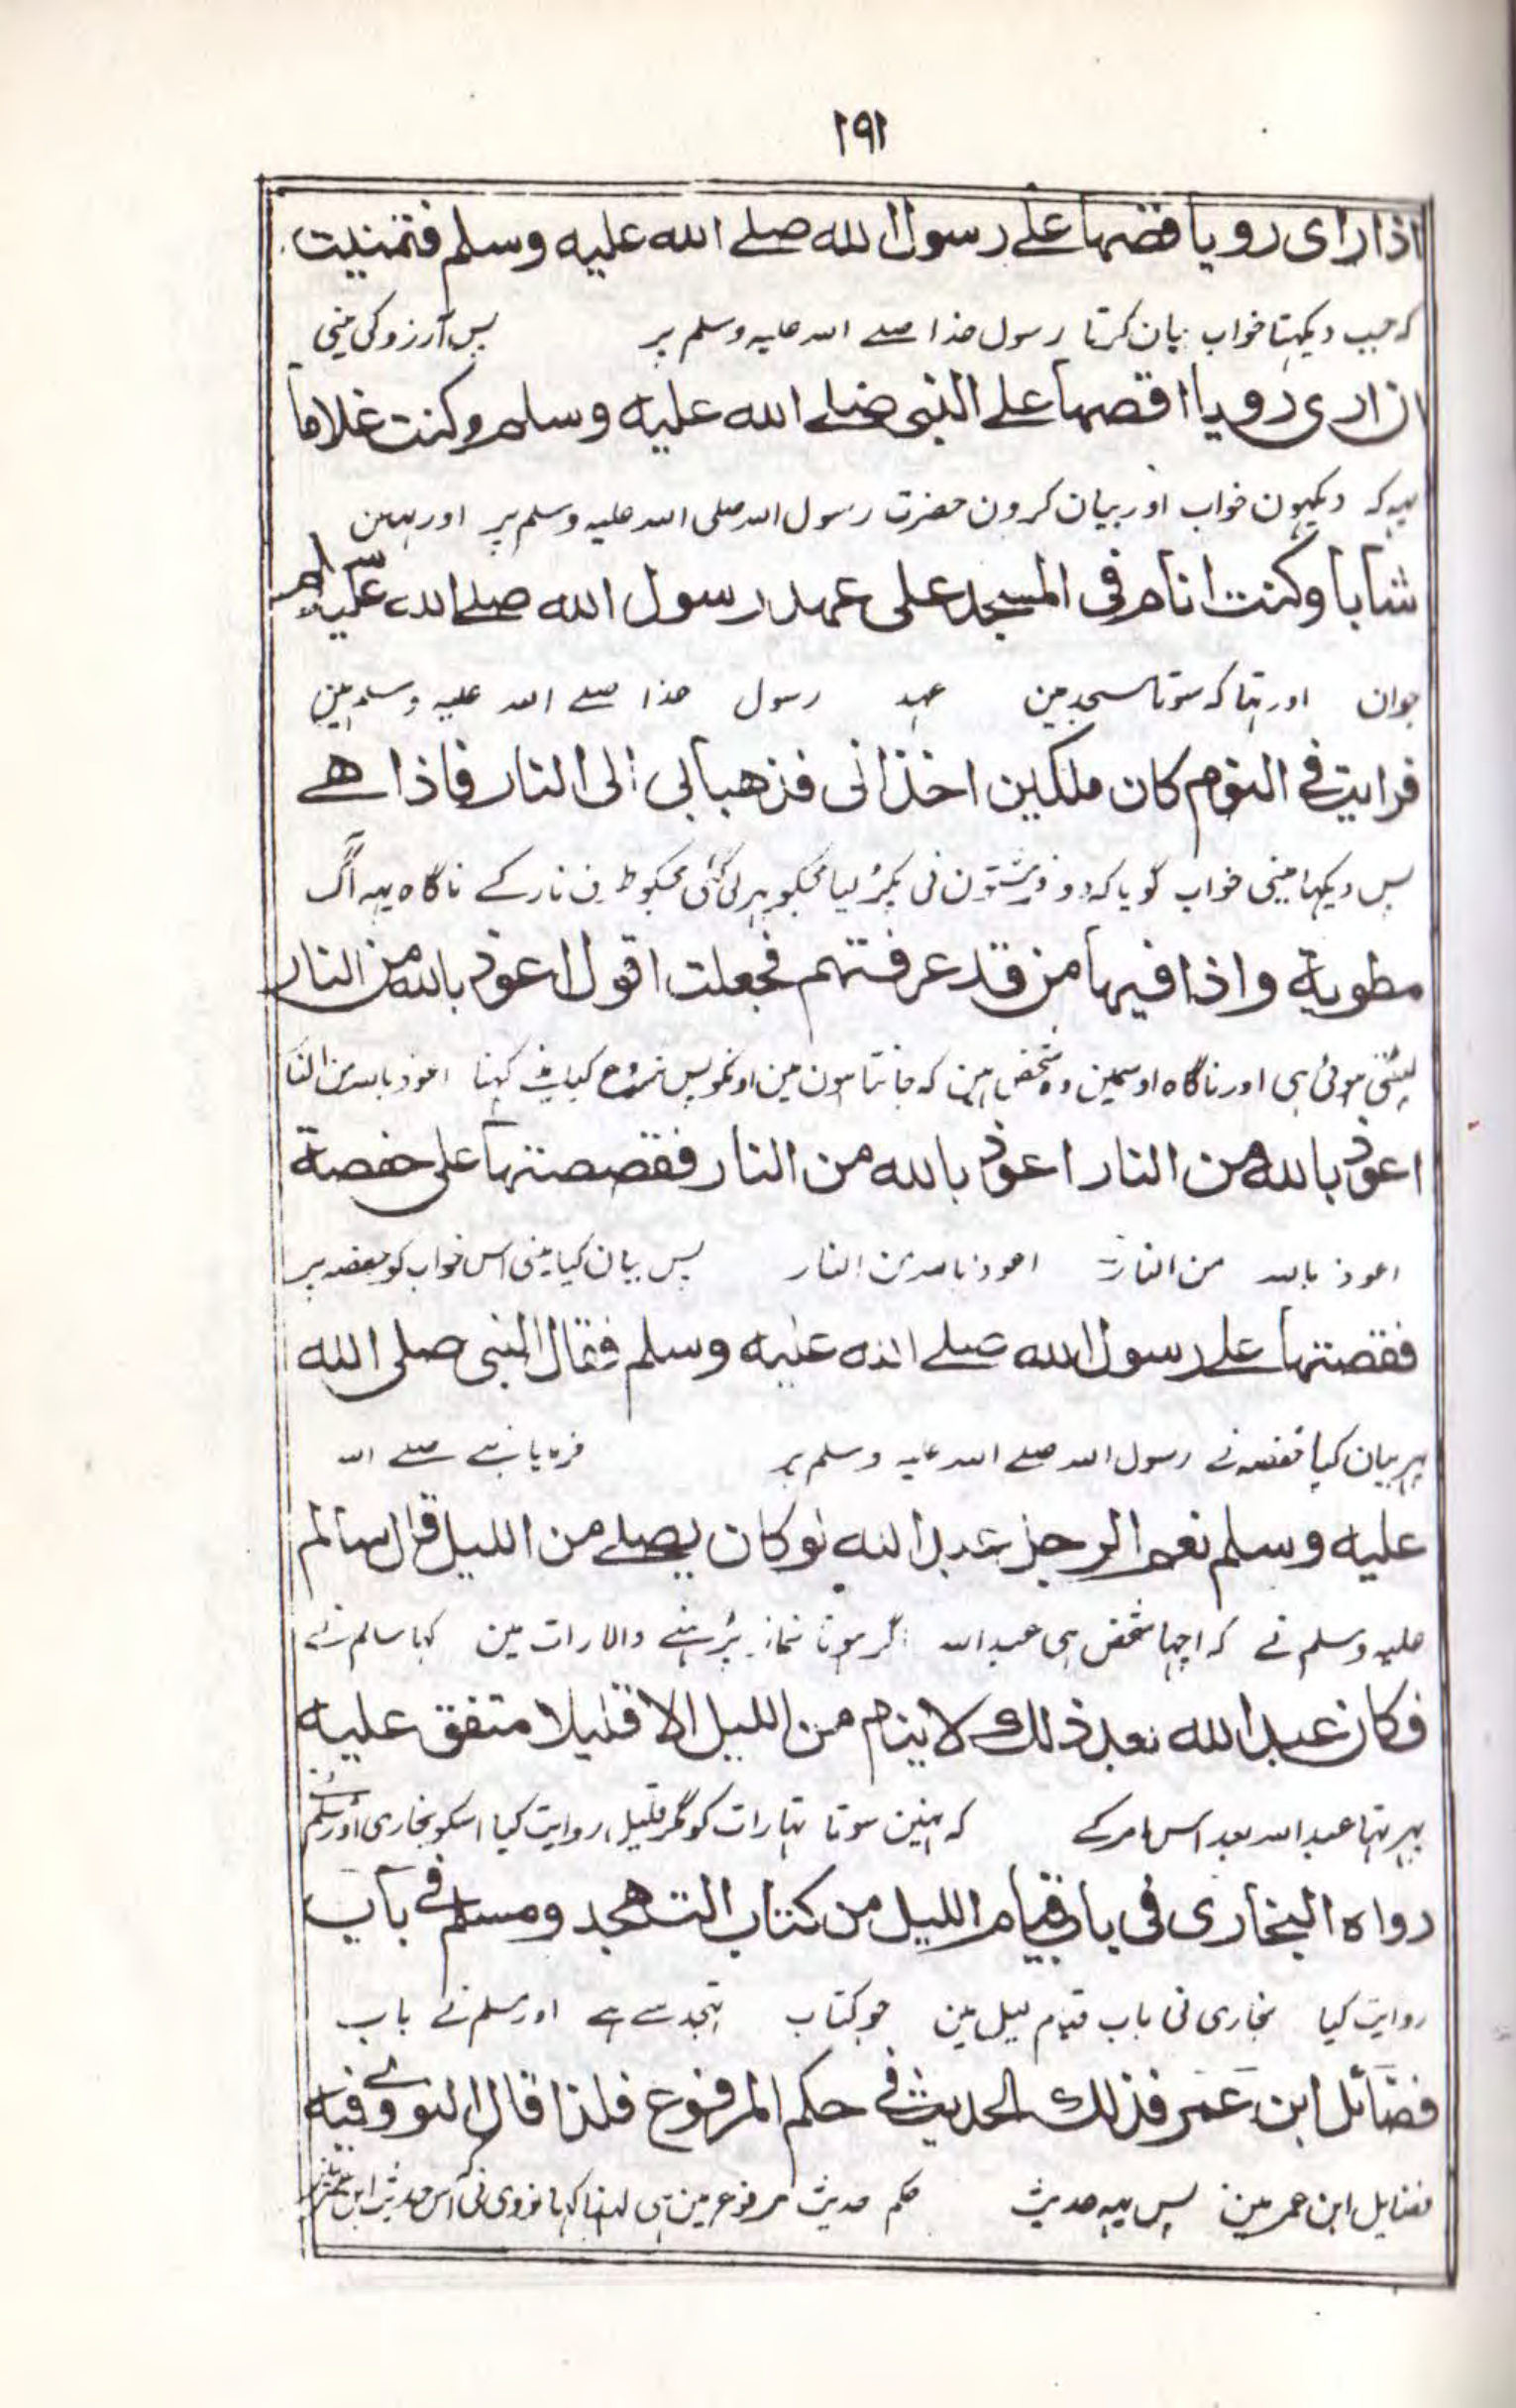 ١٩١
اذا رای رویا قصها علے رسول الله صلے الله علیه وسلم فتمنیت
که جب دیکہتا خواب بیان کرتا رسول خدا صلے الله علیه وسلم پر پس آرزو کی مینی
ان اری رویا اقصها علے النبی صلے الله علیه وسلم وکنت غلاما
یہہ که دیکہون خواب اور بیان کرون حضرت رسول الله صلی الله علیه وسلم پر اور
شابا وکنت انام فی المسجد علی عهد رسول الله صلے الله علیه وسلم
جوان اور تہا که سوتا مسجد مین عہد رسول خدا صلے الله علیه وسلم مین
فرایت فے النوم کان ملکین اخذانی فذهبا بی الی النار فاذا هے
پس دیکہا مینی خواب گویا که دو فرشتون نی پکڑ لیا مجکو پہر لی گئی مجکو طرف نار کے ناگاه یہہ آگ
مطویة واذا فیها من قد عرفتهم فجعلت اقول اعوذ بالله من النار
لپٹی ہوئی ہی اور ناگاه اوسمین وه شخص ہین که جانتا ہون مین اونکو پس شروع کیا مینے کہنا اعوذ بالله من النار
اعوذ بالله من النار اعوذ بالله من النار فقصصتها علی حفصة
اعوذ بالله من النار اعوذ بالله من النار پس بیان کیا مینی اس خواب کو حفصه پر
فقصتها علے رسول الله صلے الله علیه وسلم فقال النبی صلی الله
پہر بیان کیا حفصه نے رسول الله صلے الله علیه وسلم پر فرمایا نبے صلے الله
علیه وسلم نعم الرجل عبد الله لو کان یصلے من اللیل قال سالم
علیه وسلم نے که اچہا شخص ہی عبد الله اگر ہوتا نماز پڑہنے والا رات مین کہا سالم نے
فکان عبد الله بعد ذلك لا ینام من اللیل الا قلیلا متفق علیه
پہر تہا عبد الله بعد اس امر کے که نہین سوتا تہا رات کو مگر قلیل روایت کیا اسکو بخاری اور مسلم نے
رواه البخاری فی باب قیام اللیل من کتاب التهجد ومسلم فے باب
روایت کیا بخاری نی باب قیام لیل مین جو کتاب تہجد سے ہے اور مسلم نے باب
فضائل ابن عمر فذلك الحدیث فے حکم المرفوع فلذا قال النووے فیه
فضایل ابن عمر مین پس یہہ حدیث حکم حدیث مرفوع مین ہی لہذا کہا نووی نی اس حدیث ابن عمر